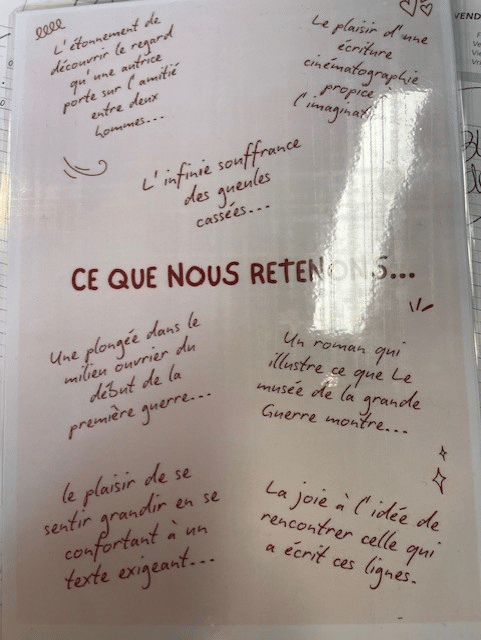 L'étonnement de
découvrir le regard
qu'une autrice
porte sur l'amitié
entre deux
hommes...
Le plaisir d'une
écriture
cinématographie
propice
l'imagina
L'infinie souffrance
des gueules
cassées...
CE QUE NOUS RETENONS...
Une plongée dans le
milieu ouvrier du
début de la
première guerre...
Un roman qui
illustre ce que Le
musée de la grande
Guerre montre...
le plaisir de se
sentir grandir en se
confortant à un
texte exigeant...
La joie à l'idée de
rencontrer celle qui
a écrit ces lignes.
VEND